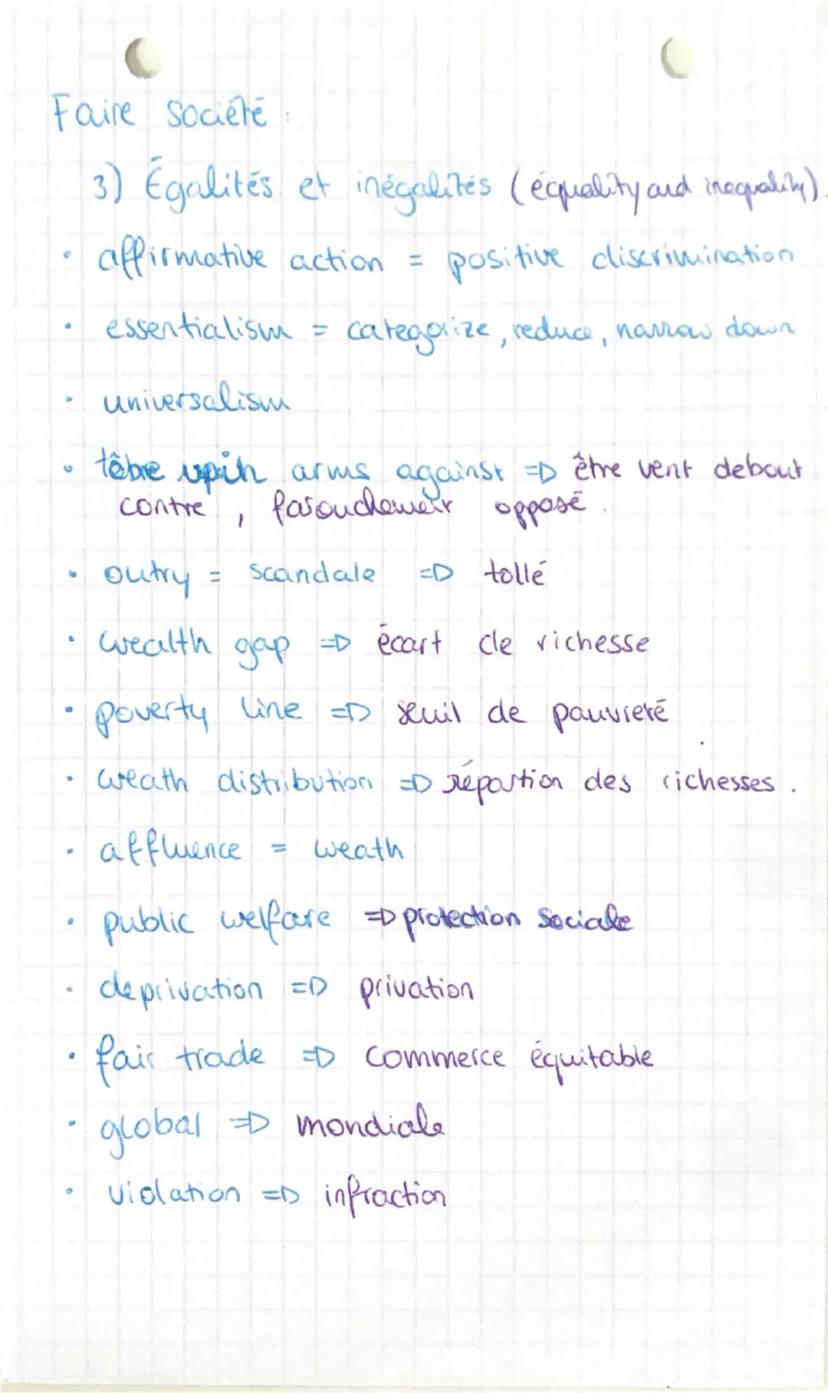 Faire société :
3) Égalités et inégalités (équality and inequality).
• affirmative action = positive discrimination
• essentialism = categorize, reduce, narrow down
• universalism
• arms against => être vent debout
contre, farouchement opposé.
• outry = scandale => tollé
• wealth gap => écart de richesse
• poverty line => seuil de pauvreté
• weath distribution => répartion des richesses.
• affluence = weath
• public welfare => protection sociale
• deprivation => privation
• fair trade => commerce équitable
• global => mondiale
• violation => infraction